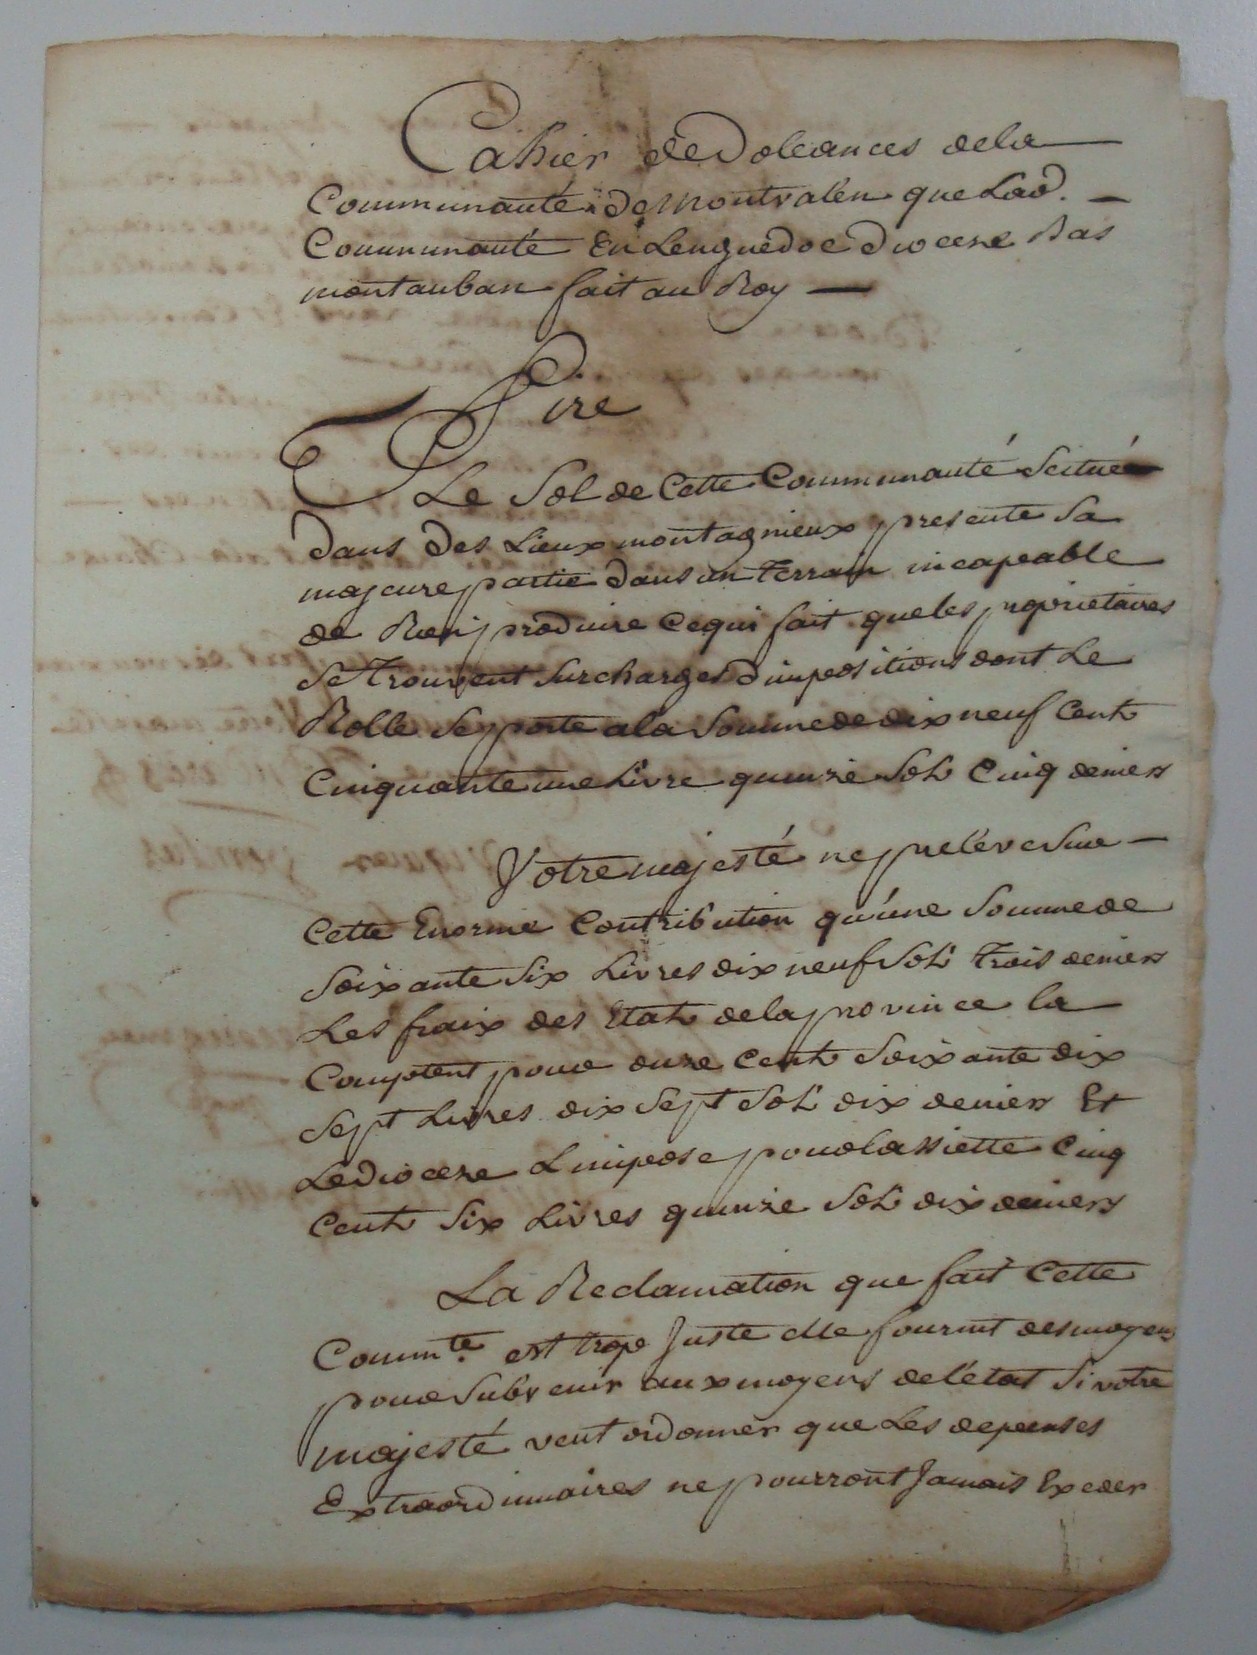 Cahier de Doleances dela
Communauté de montvalen que Lad.
Communauté En Lenguedoc Diocese Bas
montauban fait au Roy
Sire
Le Sol de Cette Communauté Scitué
dans des Lieux montagnieux presente Sa
majeure partie dans un terrain incapeable
de Rien produire cequi fait queles proprietaires
Se trouvent Surcharges d'impositions dont Le
Rolle Se porte ala Somme de dix neuf Cent
Cinquante une Livre quinze Sols Cinq deniers
Votre majesté ne preléve Sur
Cette Enorme Contribution qu'une Somme de
Soixante Six Livres dix neuf Sols trois deniers
Les fraix des Etats dela province la
Comptent pour onze Cents Soixante dix
Sept Livres dix Sept Sols dix deniers Et
Le diocese L'impose pour lassiette Cinq
Cents Six Livres quinze Sols dix deniers
La Reclamation que fait Cette
Commté. est trop Juste elle fournit des moyens
pour Subvenir aux moyens de l'état Si votre
majesté veut ordonner que Les depenses
Extraordinnaires ne pourront Jamais Exceder